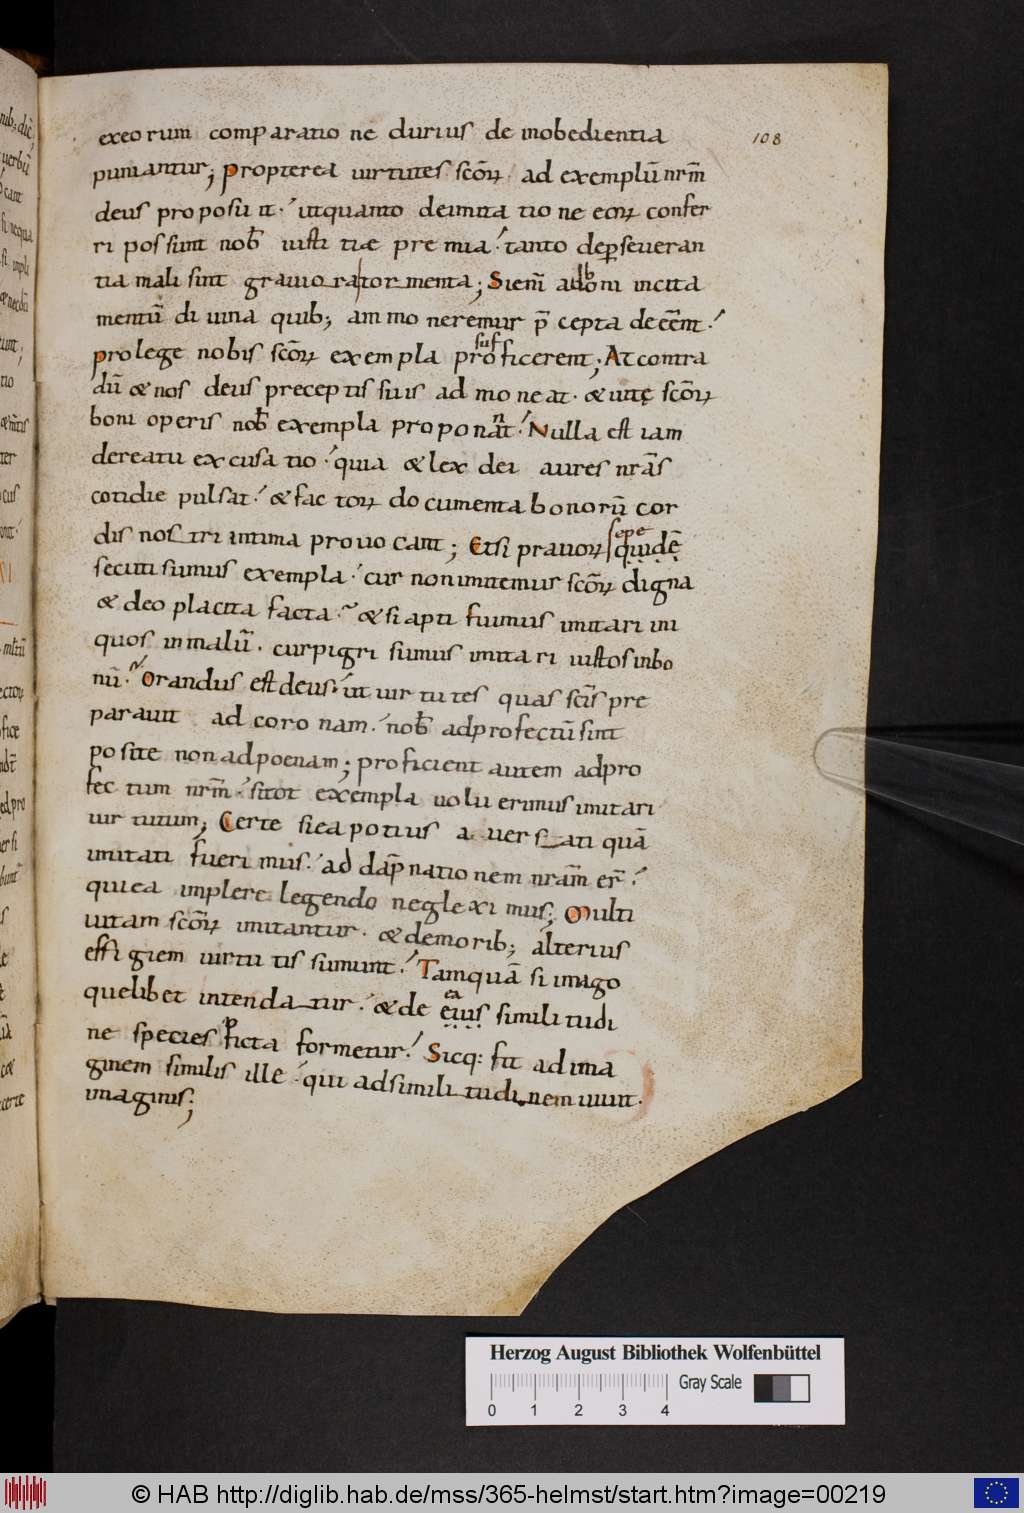 108
exeorum comparatione durius de inobedientia
puniantur; Propterea uirtutes scōꝝ ad exemplū nr̄m
deus proposuit. ut quanto deimitatione eoꝝ confer
ri possunt nob̄ iustitiæ premia. tanto deꝑseueran
tia mali sint grauiora tormenta; Si enī ad boni incita
mentū diuina quib; ammoneremur p̄cepta deēēnt.
prolege nobis scōꝝ exempla sufficerent; At contra
dū & nos deus preceptis suis admoneat. & uitę scōꝝ
boni operis nob̄ exempla proponant. Nulla est iam
dereatu excusatio. quia & lex dei aures nr̄as
cotidie pulsat. & factoꝝ documenta bonorū cor
dis nostri intima prouocant; Et si prauoꝝ sepe quidē
secuti sumus exempla. cur non imitemur scōꝝ digna
& deo placita facta. & si apti fuimus imitari ini
quos in malū. cur pigri sumus imitari iustos in bo
nū. Orandus est deus. ut uirtutes quas scīs pre
parauit ad coronam. nob̄ ad profectū sint
posite non ad poenam; proficient autem ad pro
fectum nr̄m. si tot exempla uoluerimus imitari
uirtutum; Certe si ea potius auersati quā
imitati fuerimus. ad dāpnationem nr̄am er̄.
qui ea implere legendo negleximus; Multi
uitam scōꝝ imitantur. & de morib; alterius
effigiem uirtutis sumunt. Tamquā si imago
quelibet intendatur. & de eius ea similitudi
ne species picta formetur. Sicq: fit ad ima
ginem similis ille. qui ad similitudinem uiuit.
imaginis;
Herzog August Bibliothek Wolfenbüttel
Gray Scale
0 1 2 3 4
© HAB http://diglib.hab.de/mss/365-helmst/start.htm?image=00219